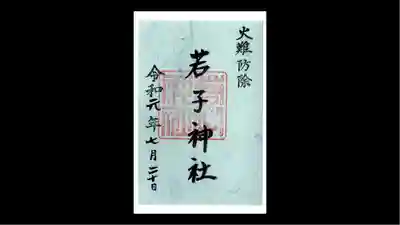 火難防除
若子神社
令和元年七月二十日